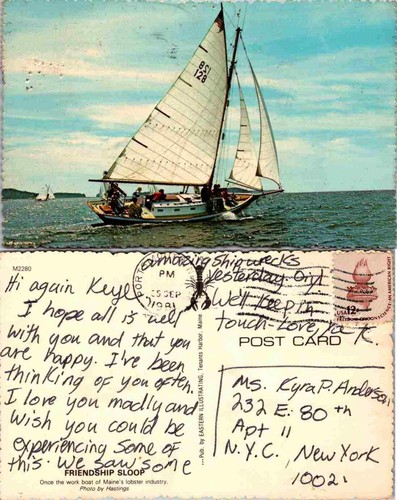 821
128
M2280
PORT
PM
5 SEP
1981
amazing shipwrecks
Yesterday.
We'll keep in
touch - Love,
Hi again
I hope all is well
with you and that you
are happy. I've been
thinking of you often.
I love you madly and
wish you could be
experiencing some of
this. We saw some
FRIENDSHIP SLOOP
Once the work boat of Maine's lobster industry.
Photo by Hastings
...Pub. by EASTERN ILLUSTRATING, Tenants Harbor, Maine
USA 12c
POST CARD
Ms. Kyra P. Anderson
232 E. 80th
Apt 11
N.Y.C., New York
10021